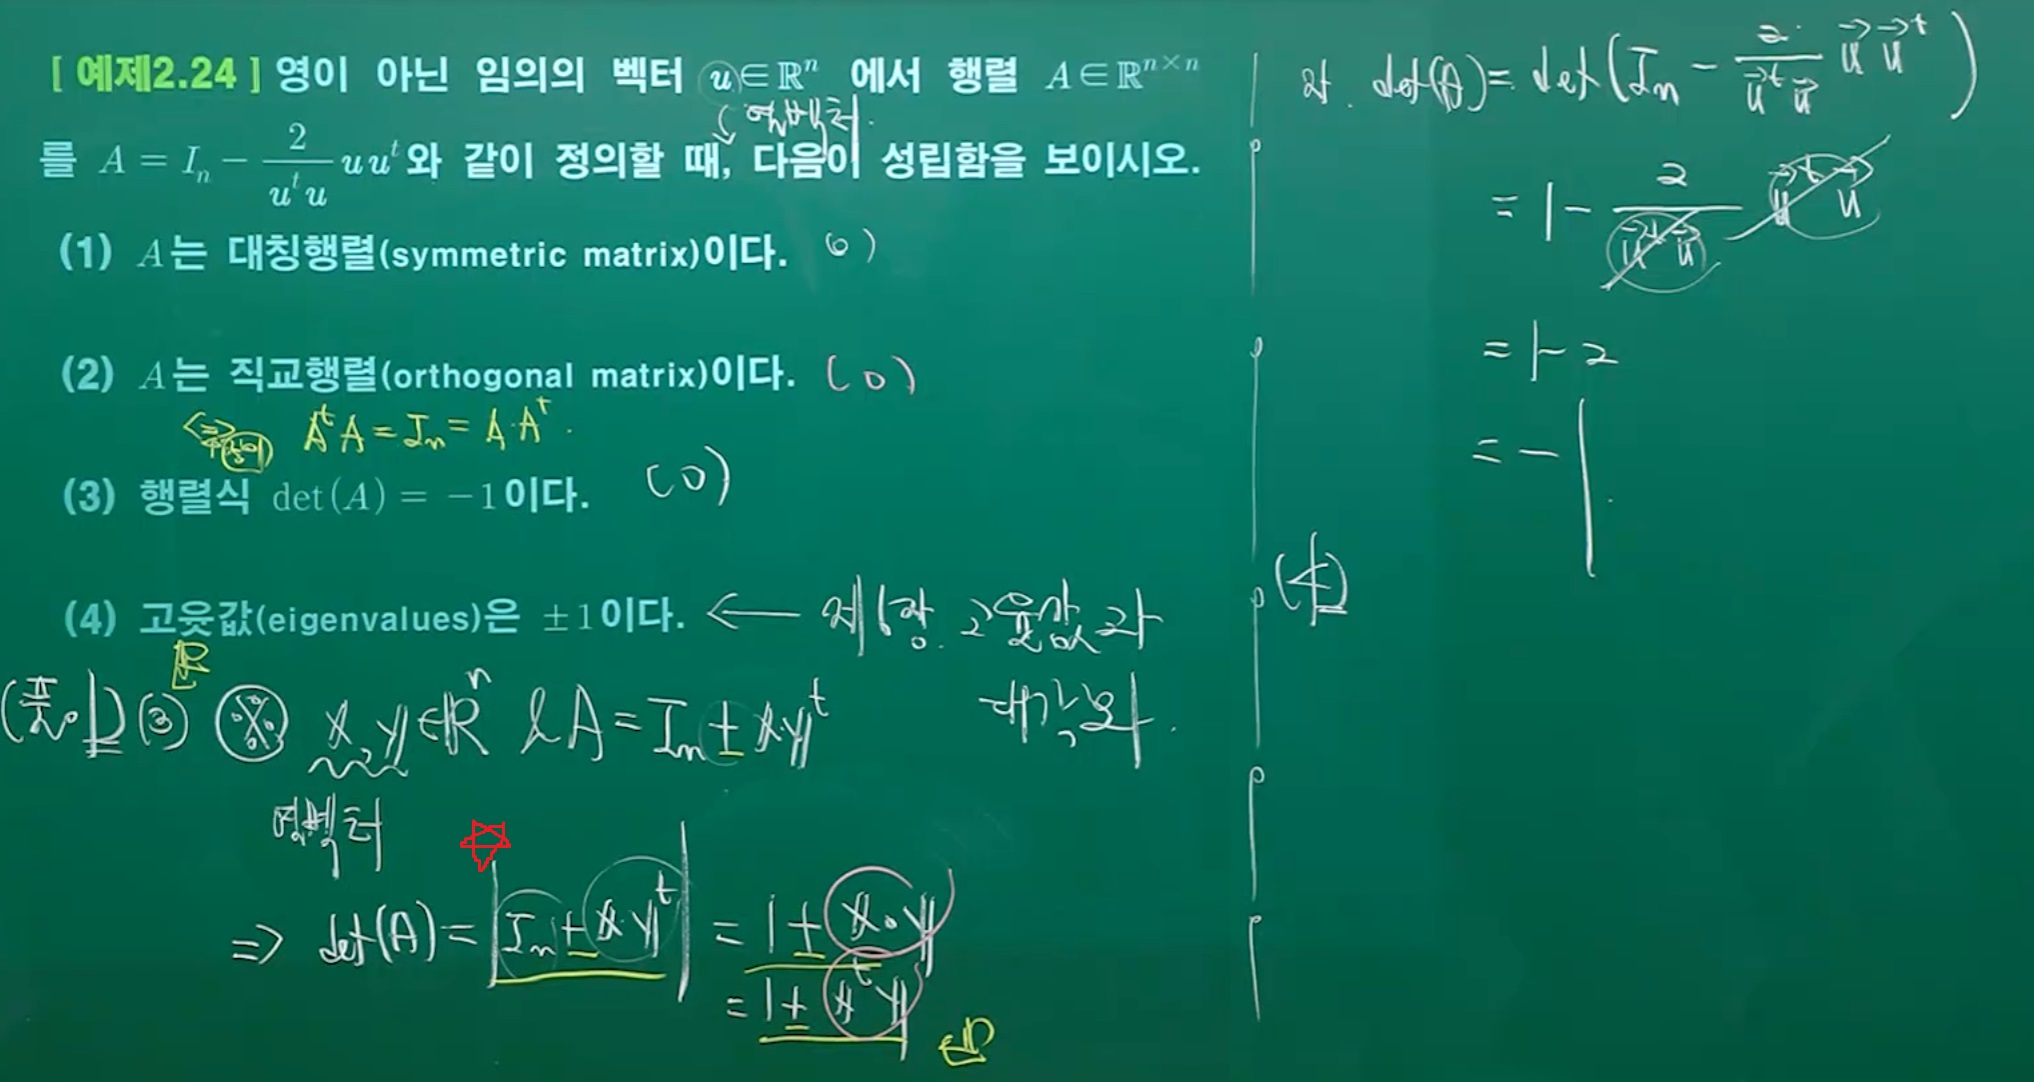 [ 예제2.24 ] 영이 아닌 임의의 벡터 u∈ℝⁿ 에서 행렬 A∈ℝⁿˣⁿ
열벡터.
를 A = Iₙ − 2/(uᵗu) uuᵗ와 같이 정의할 때, 다음이 성립함을 보이시오.
(1) A는 대칭행렬(symmetric matrix)이다. (0)
(2) A는 직교행렬(orthogonal matrix)이다. (0)
⇔ AᵗA = Iₙ = A·Aᵗ.
(3) 행렬식 det(A) = −1이다. (0)
(4) 고윳값(eigenvalues)은 ±1이다. ← 제6장. 고윳값과
대각화.
(풀이) (3) ※ x, y ∈ ℝⁿ & A = Iₙ ± x·yᵗ
열벡터
⇒ det(A) = |Iₙ ± x·yᵗ| = 1 ± x·y
= 1 ± xᵗy
det(A) = det(Iₙ − 2/(uᵗu) u uᵗ)
= 1 − 2/(uᵗu) uᵗu
= 1−2
= −1.
(4)